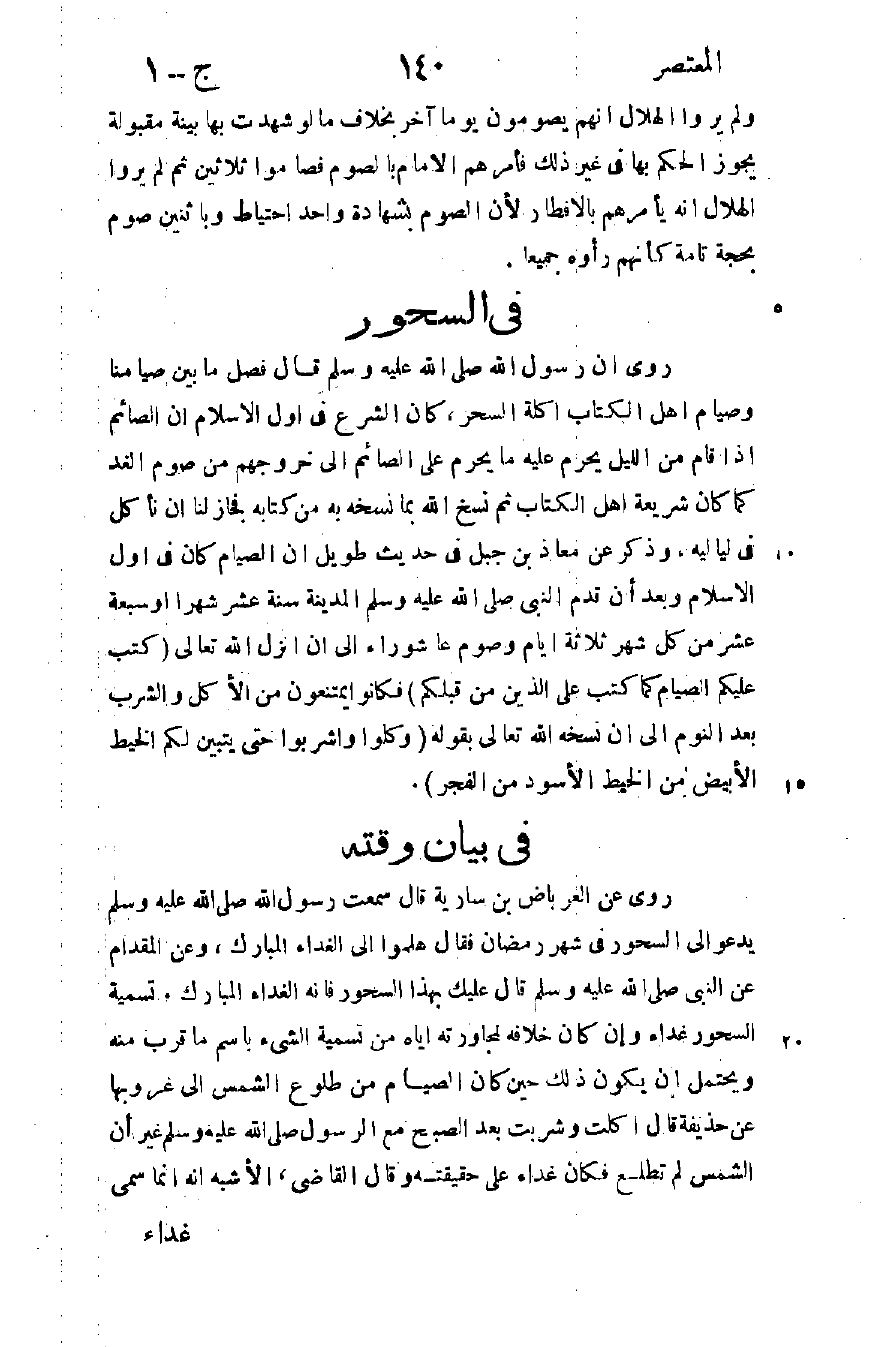 المعتصر ١٤٠ ج -- ١
ولم يروا الهلال انهم يصومون يوما آخر بخلاف ما لو شهدت بها بينة مقبولة
يجوز الحكم بها فى غير ذلك فأمرهم الامام بالصوم فصاموا ثلاثين ثم لم يروا
الهلال انه يأمرهم بالافطار لأن الصوم بشهادة واحد احتياط وباثنين صوم
بحجة تامة كأنهم رأوه جميعا .
فى السحور ٥
روى ان رسول الله صلى الله عليه وسلم قال فصل ما بين صيامنا
وصيام اهل الكتاب اكلة السحر ، كان الشرع فى اول الاسلام ان الصائم
اذا قام من الليل يحرم عليه ما يحرم على الصائم الى خروجهم من صوم الغد
كما كان شريعة اهل الكتاب ثم نسخ الله بما نسخه به من كتابه فجاز لنا ان نأكل
فى لياليه ، وذكر عن معاذ بن جبل فى حديث طويل ان الصيام كان فى اول ١٠
الاسلام وبعد أن قدم النبى صلى الله عليه وسلم المدينة ستة عشر شهرا او سبعة
عشر من كل شهر ثلاثة ايام وصوم عاشوراء الى ان انزل الله تعالى ( كتب
عليكم الصيام كما كتب على الذين من قبلكم ) فكانوا يمتنعون من الأكل والشرب
بعد النوم الى ان نسخه الله تعالى بقوله ( وكلوا واشربوا حتى يتبين لكم الخيط
الأبيض من الخيط الأسود من الفجر ) . ١٥
فى بيان وقته
روى عن العرباض بن سارية قال سمعت رسول الله صلى الله عليه وسلم
يدعو الى السحور فى شهر رمضان فقال هلموا الى الغداء المبارك ، وعن المقدام
عن النبى صلى الله عليه وسلم قال عليك بهذا السحور فانه الغداء المبارك . تسمية
السحور غداء وإن كان خلافه لمجاورته اياه من تسمية الشىء باسم ما قرب منه ٢٠
ويحتمل إن يكون ذلك حين كان الصيام من طلوع الشمس الى غروبها
عن حذيفة قال اكلت وشربت بعد الصبح مع الرسول صلى الله عليه وسلم غير أن
الشمس لم تطلع فكان غداء على حقيقته وقال القاضى ، الأشبه انه انما سمى
غداء